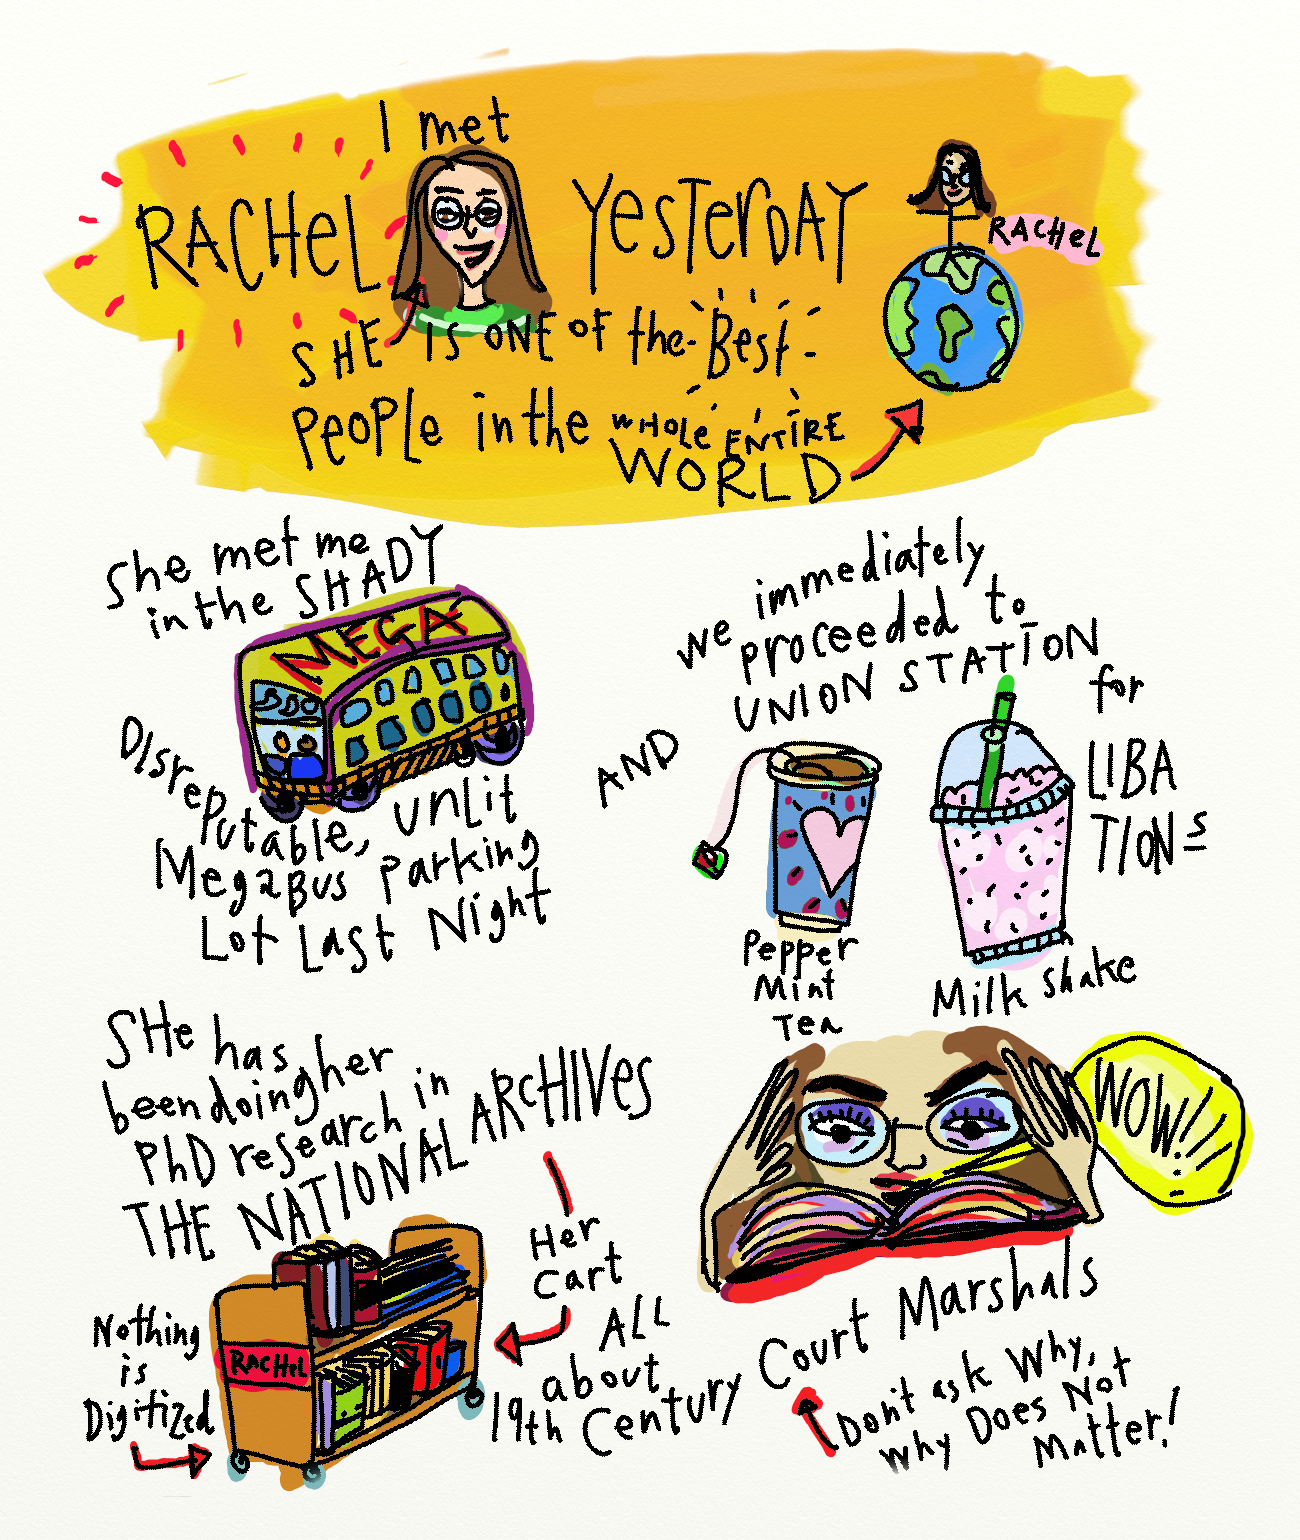 I met
RACHEL YESTERDAY
RACHEL
SHE IS ONE OF the Best
PEOPLE in the WHOLE ENTIRE
WORLD
She met me
in the SHADY
MEGA
BDO
DISreputable, UNLit
MegaBus parking
Lot Last Night
AND
we immediately
proceeded to
UNION STATION
for
LIBA
TIONS
Pepper
Mint
Tea
Milk Shake
SHe has
been doing her
PhD research in
THE NATIONAL ARCHIVES
Her
Cart
Nothing
is
Digitized
RACHEL
ALL
about
19th Century Court Marshals
WOW!!!
Don't ask Why,
Why Does Not
Matter!